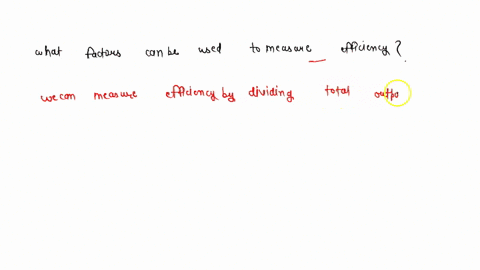 what factors can be used to measure efficiency?
we can measure efficiency by dividing total outpo